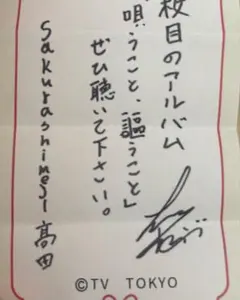 枚目のアルバム
「唄うこと、謳うこと」
ぜひ聴いて下さい。
Sakurashimeji 高田
©TV TOKYO